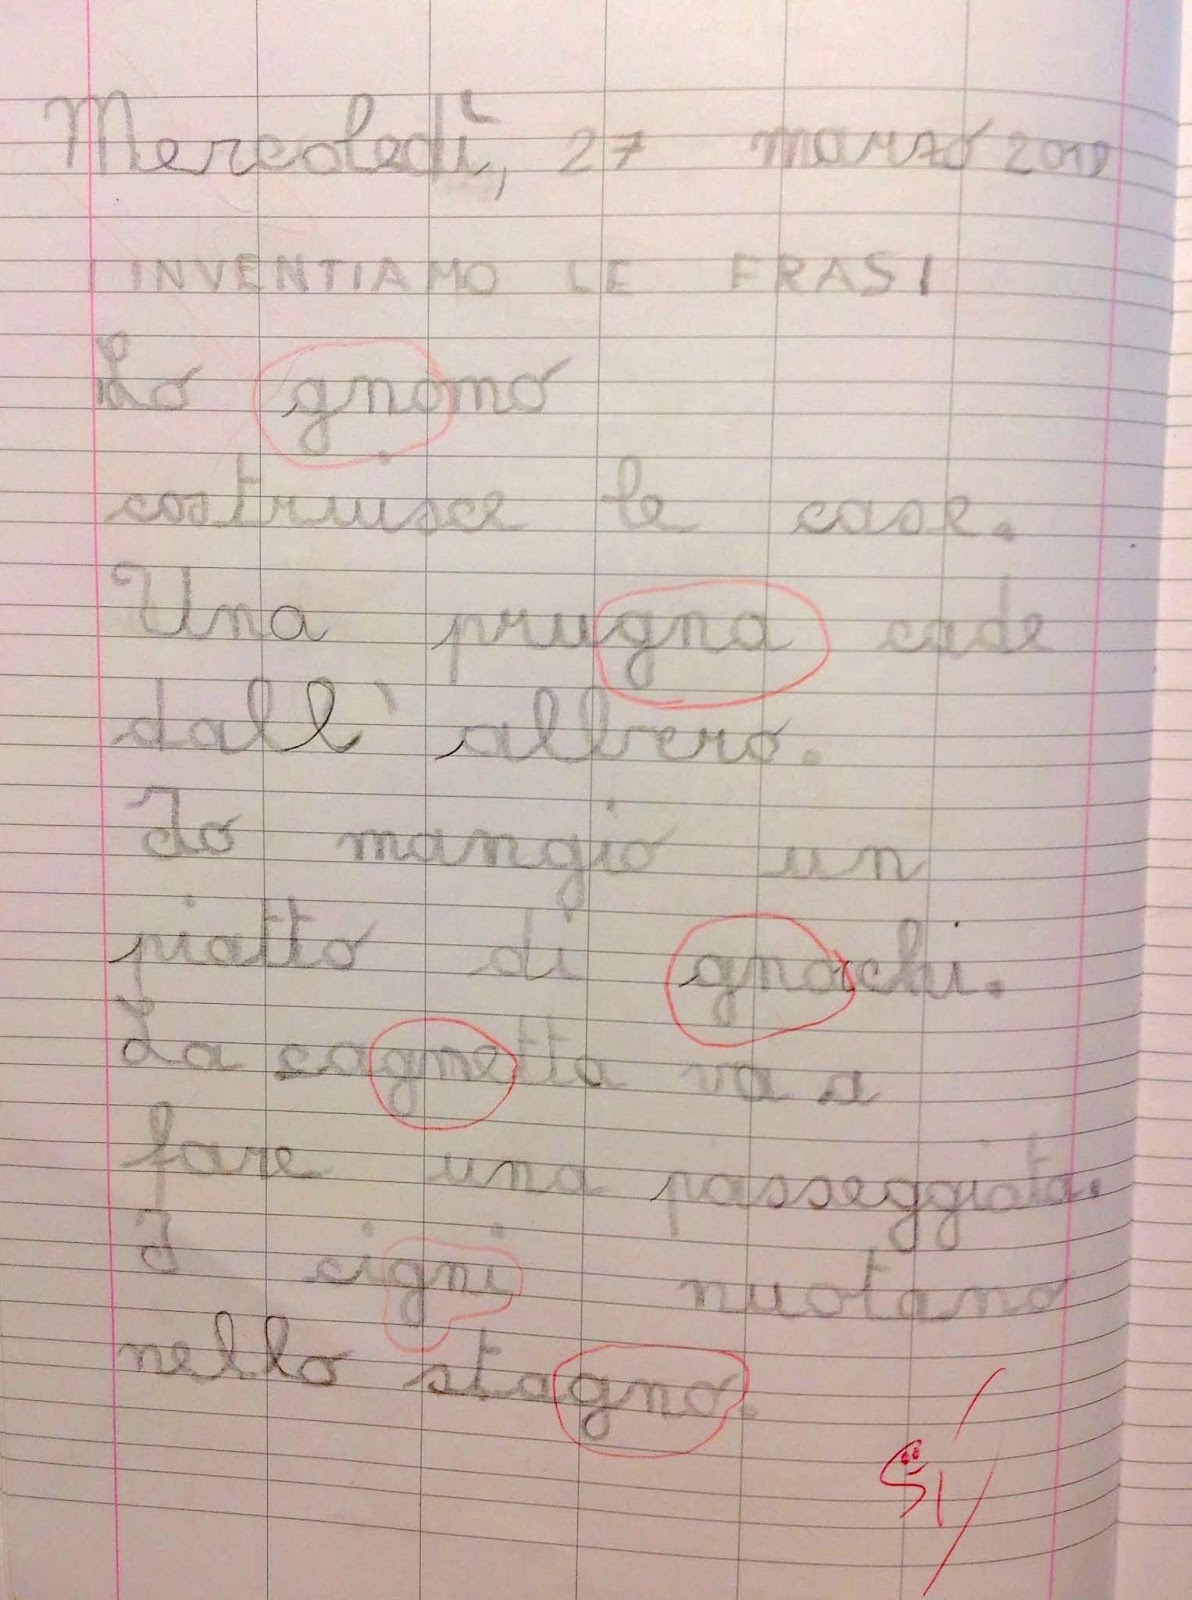 Mercoledì, 27 marzo 2019
INVENTIAMO LE FRASI
Lo gnomo
costruisce le case.
Una prugna cade
dall'albero.
Io mangio un
piatto di gnocchi.
La cagnetta va a
fare una passeggiata.
I cigni nuotano
nello stagno.
Sì